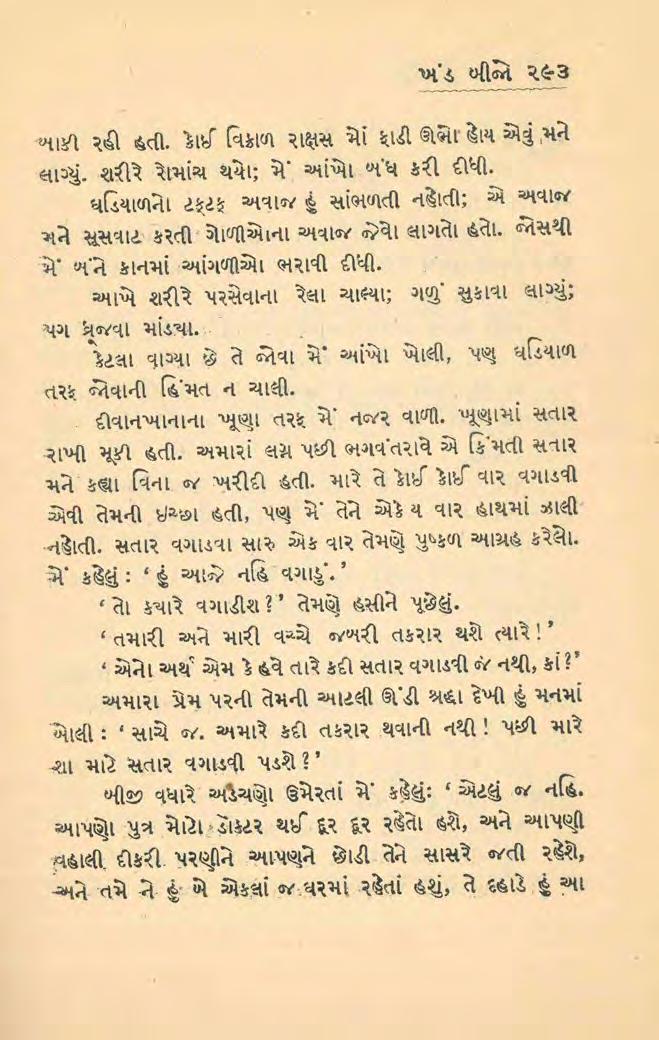 ખંડ બીજો ૨૯૩
બાકી રહી હતી. કોઈ વિક્રાળ રાક્ષસ મોં ફાડી ઊભો હોય એવું મને
લાગ્યું. શરીરે રોમાંચ થયો; મેં આંખો બંધ કરી દીધી.
ઘડિયાળનો ટક્ટક્ અવાજ હું સાંભળતી નહોતી; એ અવાજ
મને સૂસવાટ કરતી ગોળીઓના અવાજ જેવો લાગતો હતો. જોસથી
મેં બંને કાનમાં આંગળીઓ ભરાવી દીધી.
આખે શરીરે પરસેવાના રેલા ચાલ્યા; ગળું સુકાવા લાગ્યું;
પગ ધ્રૂજવા માંડ્યા.
કેટલા વાગ્યા છે તે જોવા મેં આંખો ખોલી, પણ ઘડિયાળ
તરફ જોવાની હિંમત ન ચાલી.
દીવાનખાનાના ખૂણા તરફ મેં નજર વાળી. ખૂણામાં સતાર
રાખી મૂકી હતી. અમારાં લગ્ન પછી ભગવંતરાવે એ કિંમતી સતાર
મને કહ્યા વિના જ ખરીદી હતી. મારે તે કોઈ કોઈ વાર વગાડવી
એવી તેમની ઇચ્છા હતી, પણ મેં તેને એકે ય વાર હાથમાં ઝાલી
નહોતી. સતાર વગાડવા સારુ એક વાર તેમણે પુષ્કળ આગ્રહ કરેલો.
મેં કહેલું : ‘ હું આજે નહિ વગાડું.’
‘ તો ક્યારે વગાડીશ ? ’ તેમણે હસીને પૂછેલું.
‘ તમારી અને મારી વચ્ચે જબરી તકરાર થશે ત્યારે ! ’
‘ એનો અર્થ એમ કે હવે તારે કદી સતાર વગાડવી જ નથી, કાં ? ’
અમારા પ્રેમ પરની તેમની આટલી ઊંડી શ્રદ્ધા દેખી હું મનમાં
બોલી : ‘ સાચે જ. અમારે કદી તકરાર થવાની નથી ! પછી મારે
શા માટે સતાર વગાડવી પડશે ? ’
બીજી વધારે અડચણો ઉમેરતાં મેં કહેલું: ‘ એટલું જ નહિ.
આપણો પુત્ર મોટો ડૉક્ટર થઈ દૂર દૂર રહેતો હશે, અને આપણી
વહાલી દીકરી પરણીને આપણને છોડી તેને સાસરે જતી રહેશે,
અને તમે ને હું બે એકલાં જ ઘરમાં રહેતાં હશું, તે દહાડે હું આ